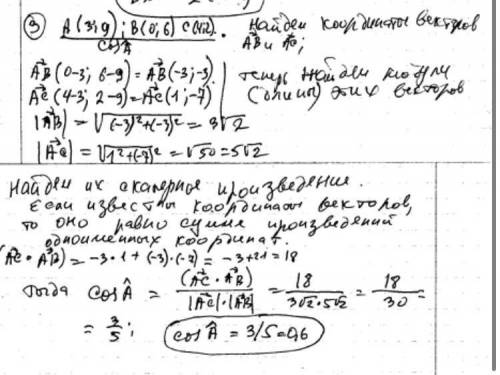 ③ A(3;9); B(0;6) C(4;2). Найдем координаты векторов
cosÂ AB и AC;
AB(0-3; 6-9)=AB(-3;-3) теперь найдем модули
AC(4-3; 2-9)=AC(1;-7) (длины) этих векторов
|AB| = √(-3)²+(-3)² = 3√2
|AC| = √1²+(-7)² = √50 = 5√2
Найдем их скалярное произведение.
Если известны координаты векторов,
то оно равно сумме произведений
одноименных координат.
(AC · AB) = -3·1+(-3)·(-7) = -3+21=18
тогда cosÂ = (AC · AB) / |AC|·|AB| = 18 / 3√2·5√2 = 18/30 =
= 3/5; cosÂ = 3/5=0,6